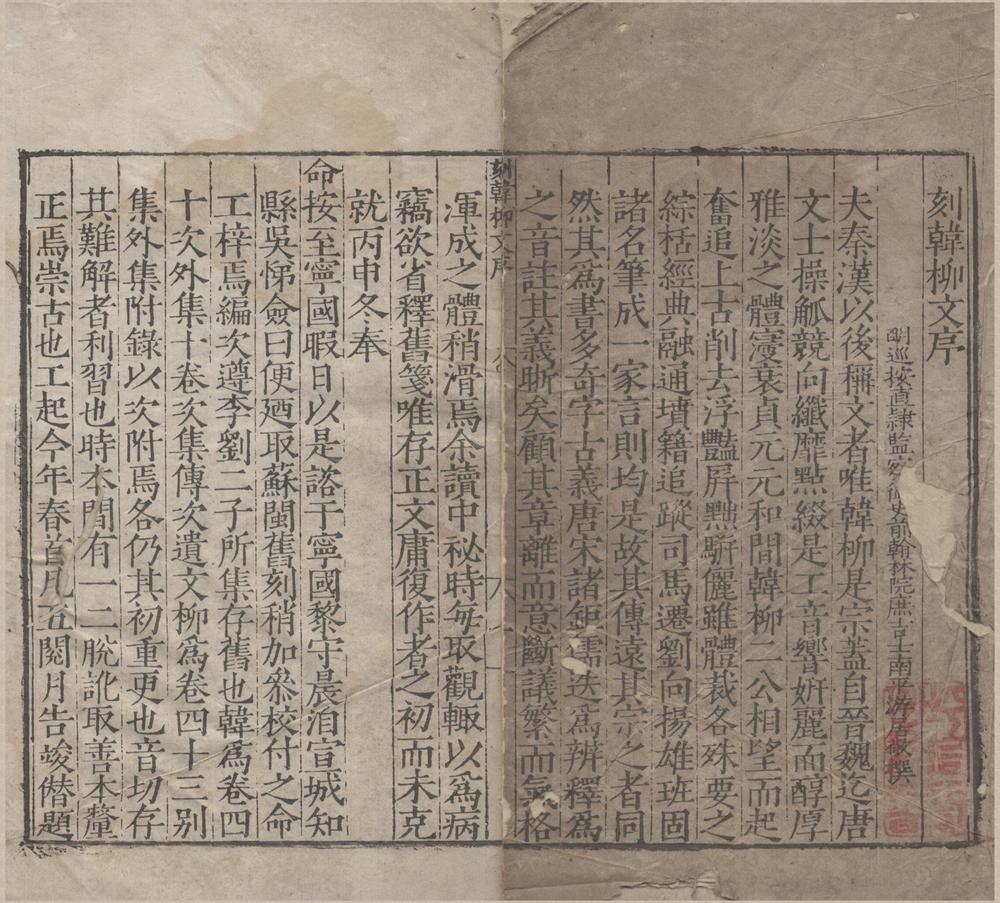 刻韓柳文序
明巡按直隸監察御史前翰林院庶吉士南平游居敬撰
夫秦漢以後稱文者唯韓柳是宗蓋自晉魏迄唐
文士操觚競向纖靡點綴是工音響妍麗而醇厚
雅淡之體寖衰貞元元和間韓柳二公相望而起
奮追上古削去浮豔屏黜駢儷雖體裁各殊要之
綜括經典融通墳籍追蹤司馬遷劉向揚雄班固
諸名筆成一家言則均是故其傳遠其宗之者同
然其爲書多奇字古義唐宋諸鉅儒迭爲辨釋爲
之音註其義晰矣顧其章離而意斷議繁而氣格
刻韓柳文序
渾成之體稍滑焉余讀中祕時每取觀輙以爲病
竊欲省釋舊箋唯存正文庸復作者之初而未克
就丙申冬奉
命按至寧國暇日以是諮于寧國黎守晨洎宣城知
縣吳悌僉曰便廼取蘇閩舊刻稍加叅校付之命
工梓焉編次遵李劉二子所集存舊也韓爲卷四
十次外集十卷次集傳次遺文柳爲卷四十三别
集外集附錄以次附焉各仍其初重更也音切存
其難解者利習也時本間有一二脫訛取善本釐
正焉崇古也工起今年春首凡五閱月告竣僣題